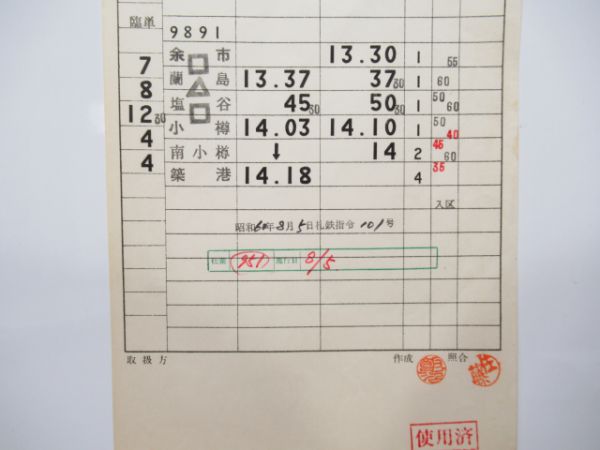 臨単 9891
余市 13.30 1 55
7 蘭島 13.37 37 30 1 60
8 塩谷 45 30 50 30 1 50 60
12 30 小樽 14.03 14.10 1 50 40
4 南小樽 ↓ 14 2 45 60
4 築港 14.18 4 35
入区
昭和60年8月5日札鉄指令101号
仕業 951 施行日 8/5
取扱方 作成 照合
使用済